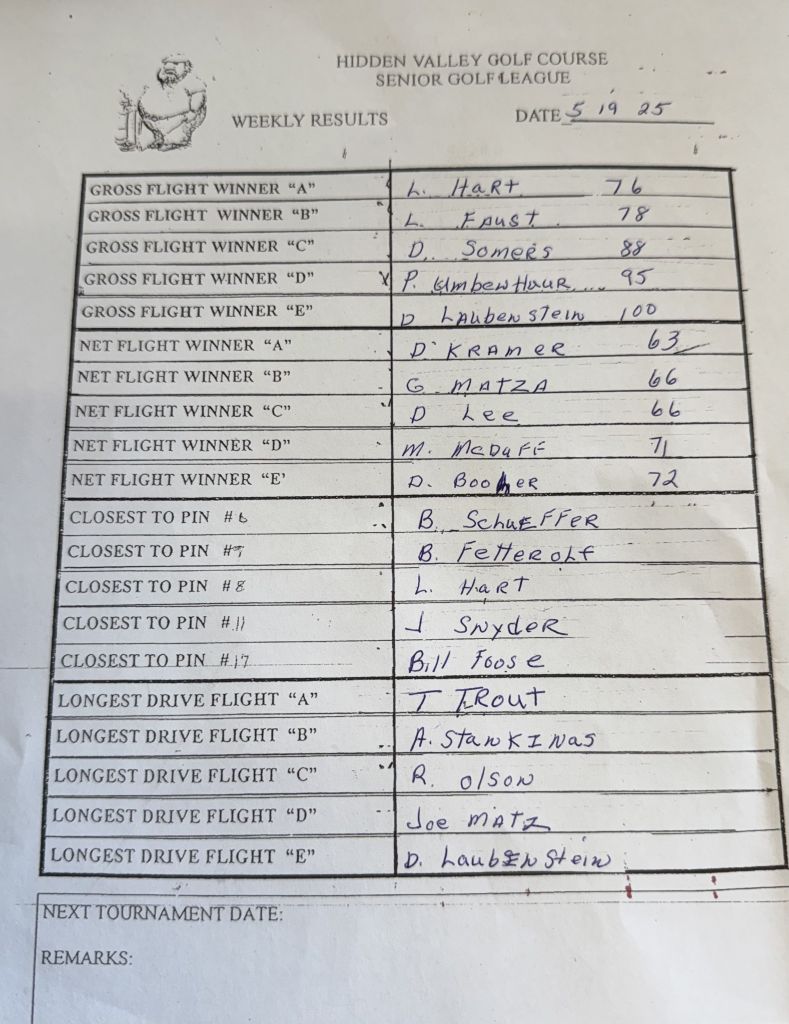 HIDDEN VALLEY GOLF COURSE
SENIOR GOLF LEAGUE
WEEKLY RESULTS DATE 5 19 25
GROSS FLIGHT WINNER "A" L. HART 76
GROSS FLIGHT WINNER "B" L. FAUST 78
GROSS FLIGHT WINNER "C" D. SOMERS 88
GROSS FLIGHT WINNER "D" P. UmbenHaur 95
GROSS FLIGHT WINNER "E" D LAUBENSTEIN 100
NET FLIGHT WINNER "A" D. KRAMER 63
NET FLIGHT WINNER "B" G MATZA 66
NET FLIGHT WINNER "C" D Lee 66
NET FLIGHT WINNER "D" M. McDuFF 71
NET FLIGHT WINNER "E' D. BooHER 72
CLOSEST TO PIN #6 B. SchaEFFER
CLOSEST TO PIN #7 B. Fetterolf
CLOSEST TO PIN #8 L. HART
CLOSEST TO PIN #11 J SNyDeR
CLOSEST TO PIN #17 Bill Foose
LONGEST DRIVE FLIGHT "A" T TROUT
LONGEST DRIVE FLIGHT "B" A. StanKINas
LONGEST DRIVE FLIGHT "C" R. olson
LONGEST DRIVE FLIGHT "D" Joe MATZ
LONGEST DRIVE FLIGHT "E" D. LaubENStein
NEXT TOURNAMENT DATE:
REMARKS: